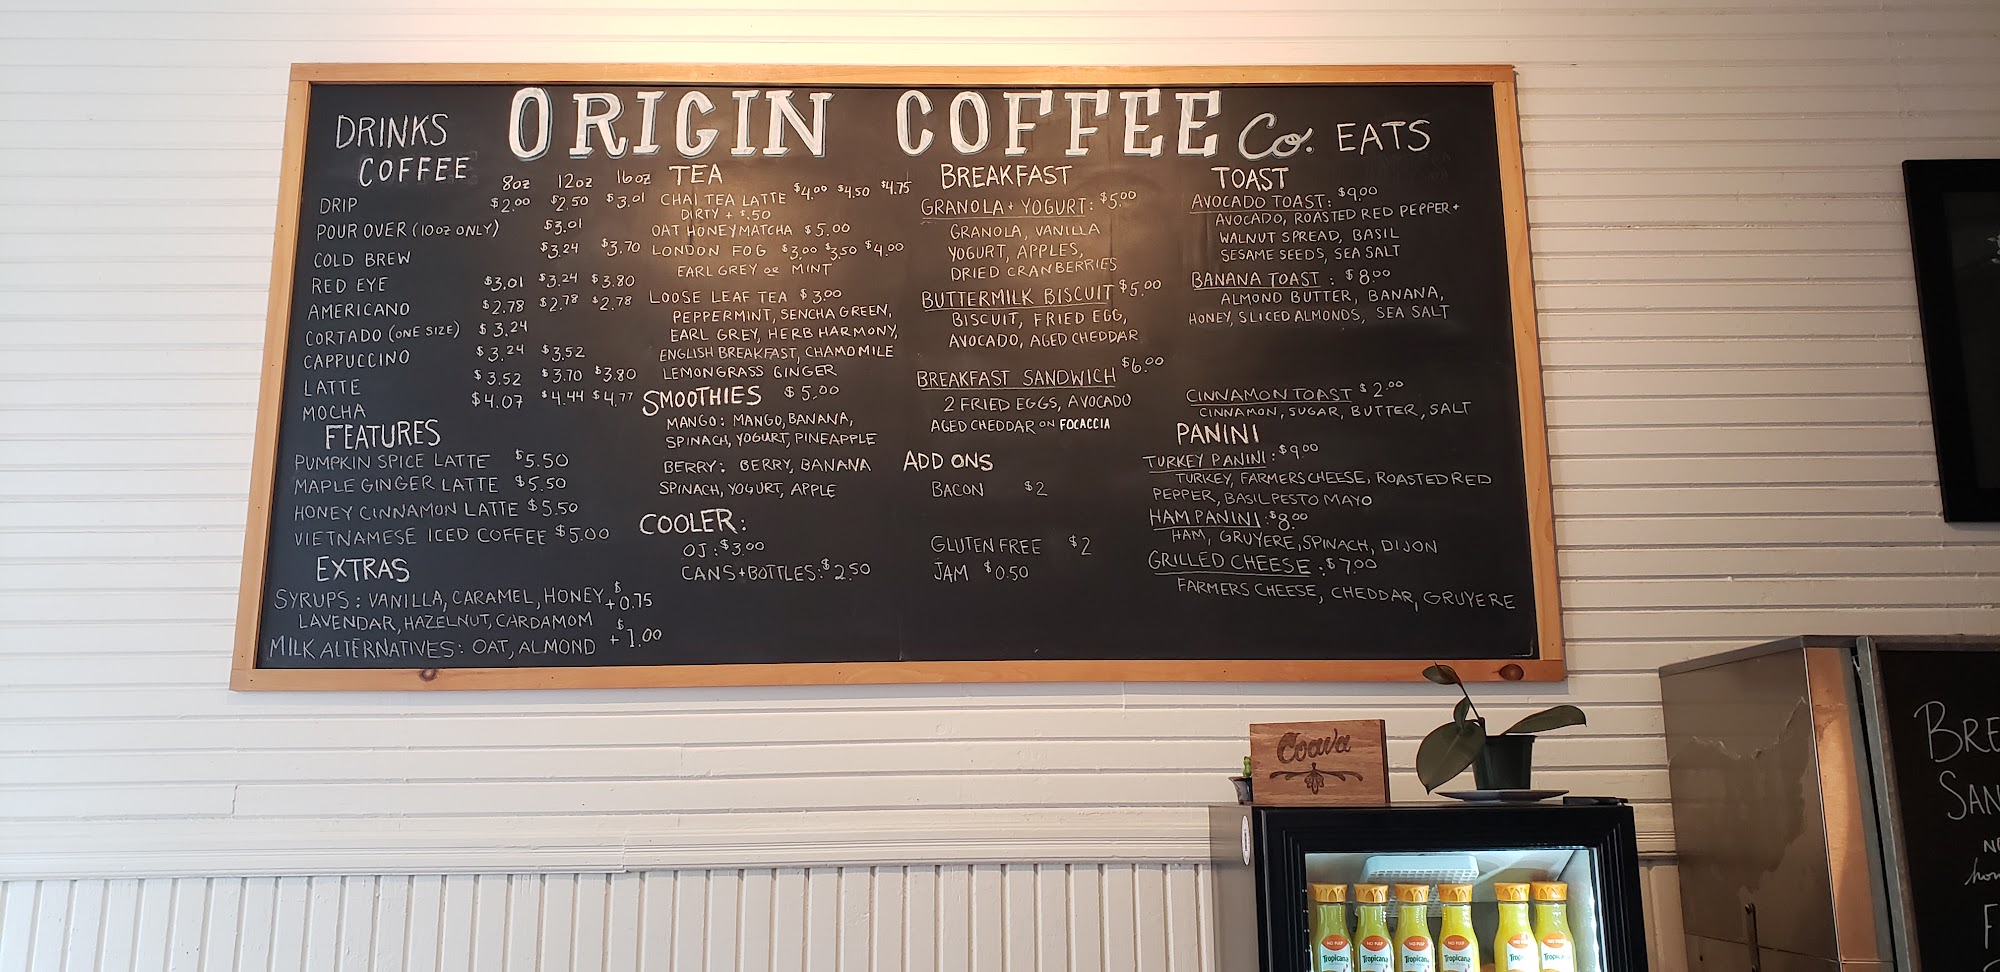 ORIGIN COFFEE Co.
DRINKS
COFFEE
8oz 12oz 16oz
DRIP $2.00 $2.50 $3.01
POUR OVER (10oz ONLY) $3.01
COLD BREW $3.24 $3.70
RED EYE $3.01 $3.24 $3.80
AMERICANO $2.78 $2.78 $2.78
CORTADO (ONE SIZE) $3.24
CAPPUCCINO $3.24 $3.52
LATTE $3.52 $3.70 $3.80
MOCHA $4.07 $4.44 $4.77
FEATURES
PUMPKIN SPICE LATTE $5.50
MAPLE GINGER LATTE $5.50
HONEY CINNAMON LATTE $5.50
VIETNAMESE ICED COFFEE $5.00
EXTRAS
SYRUPS: VANILLA, CARAMEL, HONEY $+0.75
LAVENDAR, HAZELNUT, CARDAMOM
MILK ALTERNATIVES: OAT, ALMOND $+1.00
TEA
CHAI TEA LATTE $4.00 $4.50 $4.75
DIRTY + $.50
OAT HONEY MATCHA $5.00
LONDON FOG $3.00 $3.50 $4.00
EARL GREY or MINT
LOOSE LEAF TEA $3.00
PEPPERMINT, SENCHA GREEN,
EARL GREY, HERB HARMONY,
ENGLISH BREAKFAST, CHAMOMILE
LEMONGRASS GINGER
SMOOTHIES $5.00
MANGO: MANGO, BANANA,
SPINACH, YOGURT, PINEAPPLE
BERRY: BERRY, BANANA
SPINACH, YOGURT, APPLE
COOLER:
OJ: $3.00
CANS+BOTTLES: $2.50
EATS
BREAKFAST
GRANOLA + YOGURT: $5.00
GRANOLA, VANILLA
YOGURT, APPLES,
DRIED CRANBERRIES
BUTTERMILK BISCUIT $5.00
BISCUIT, FRIED EGG,
AVOCADO, AGED CHEDDAR
BREAKFAST SANDWICH $6.00
2 FRIED EGGS, AVOCADO
AGED CHEDDAR ON FOCACCIA
ADD ONS
BACON $2
GLUTEN FREE $2
JAM $0.50
TOAST
AVOCADO TOAST: $9.00
AVOCADO, ROASTED RED PEPPER +
WALNUT SPREAD, BASIL
SESAME SEEDS, SEA SALT
BANANA TOAST: $8.00
ALMOND BUTTER, BANANA,
HONEY, SLICED ALMONDS, SEA SALT
CINNAMON TOAST $2.00
CINNAMON, SUGAR, BUTTER, SALT
PANINI
TURKEY PANINI: $9.00
TURKEY, FARMERS CHEESE, ROASTED RED
PEPPER, BASIL PESTO MAYO
HAM PANINI: $8.00
HAM, GRUYERE, SPINACH, DIJON
GRILLED CHEESE: $7.00
FARMERS CHEESE, CHEDDAR, GRUYERE
Coava
NO PULP NO PULP NO PULP NO PULP NO PULP NO PULP
Tropicana Tropicana Tropicana Tropicana
BRE
SAN